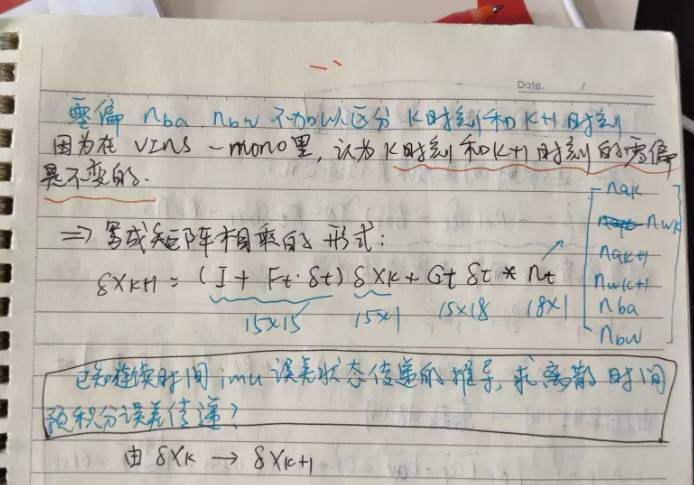 Date. /
零偏 nba nbw 不加以区分 K时刻和 K+1 时刻
因为在 VINS-mono里, 认为 K时刻和 K+1 时刻的零偏
是不变的.
⇒ 写成矩阵相乘的形式:
δXk+1 = (I + Ft·δt) δXk + Gt δt * nt
15×15 15×1 15×18 18×1
nak
nwk
nak+1
nwk+1
nba
nbw
已知连续时间 imu 误差状态传递的推导, 求离散时间
预积分误差传递?
由 δXk → δXk+1